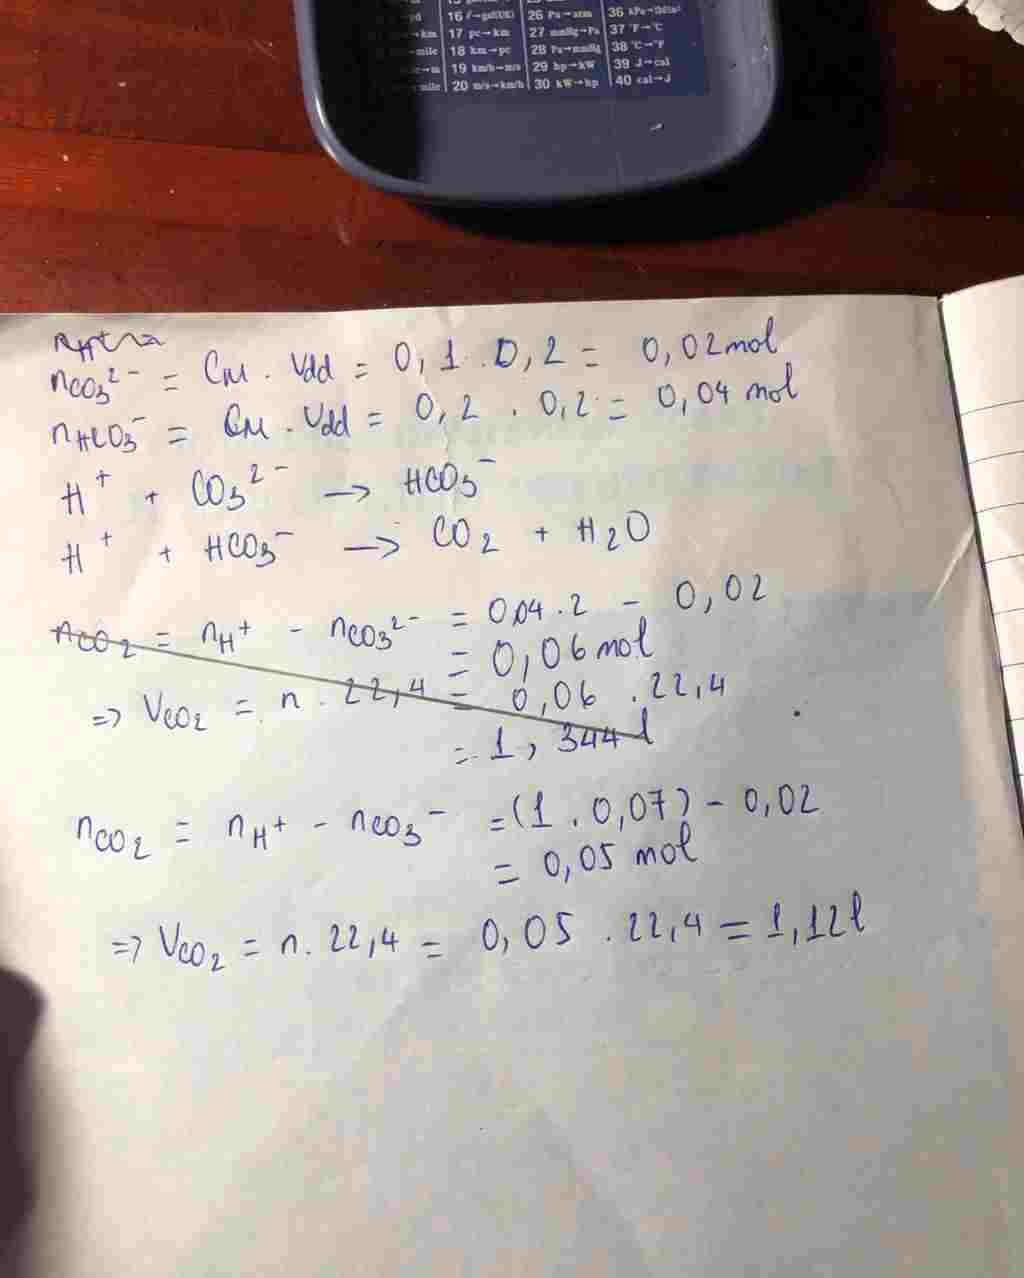 16 l→gal(UK) 26 Pa→atm 36 kPa→lbf/in²
→km 17 pc→km 27 mmHg→Pa 37 °F→°C
→mile 18 km→pc 28 Pa→mmHg 38 °C→°F
→m 19 km/h→m/s 29 hp→kW 39 J→cal
mile 20 m/s→km/h 30 kW→hp 40 cal→J
nCO₃²⁻ = CM . Vdd = 0,1 . 0,2 = 0,02 mol
nHCO₃⁻ = CM . Vdd = 0,2 . 0,2 = 0,04 mol
H⁺ + CO₃²⁻ → HCO₃⁻
H⁺ + HCO₃⁻ → CO₂ + H₂O
nCO₂ = nH⁺ - nCO₃²⁻ = 0,04 . 2 - 0,02
= 0,06 mol
=> VCO₂ = n . 22,4 = 0,06 . 22,4
= 1,344 l
nCO₂ = nH⁺ - nCO₃⁻ = (1 . 0,07) - 0,02
= 0,05 mol
=> VCO₂ = n . 22,4 = 0,05 . 22,4 = 1,12 l